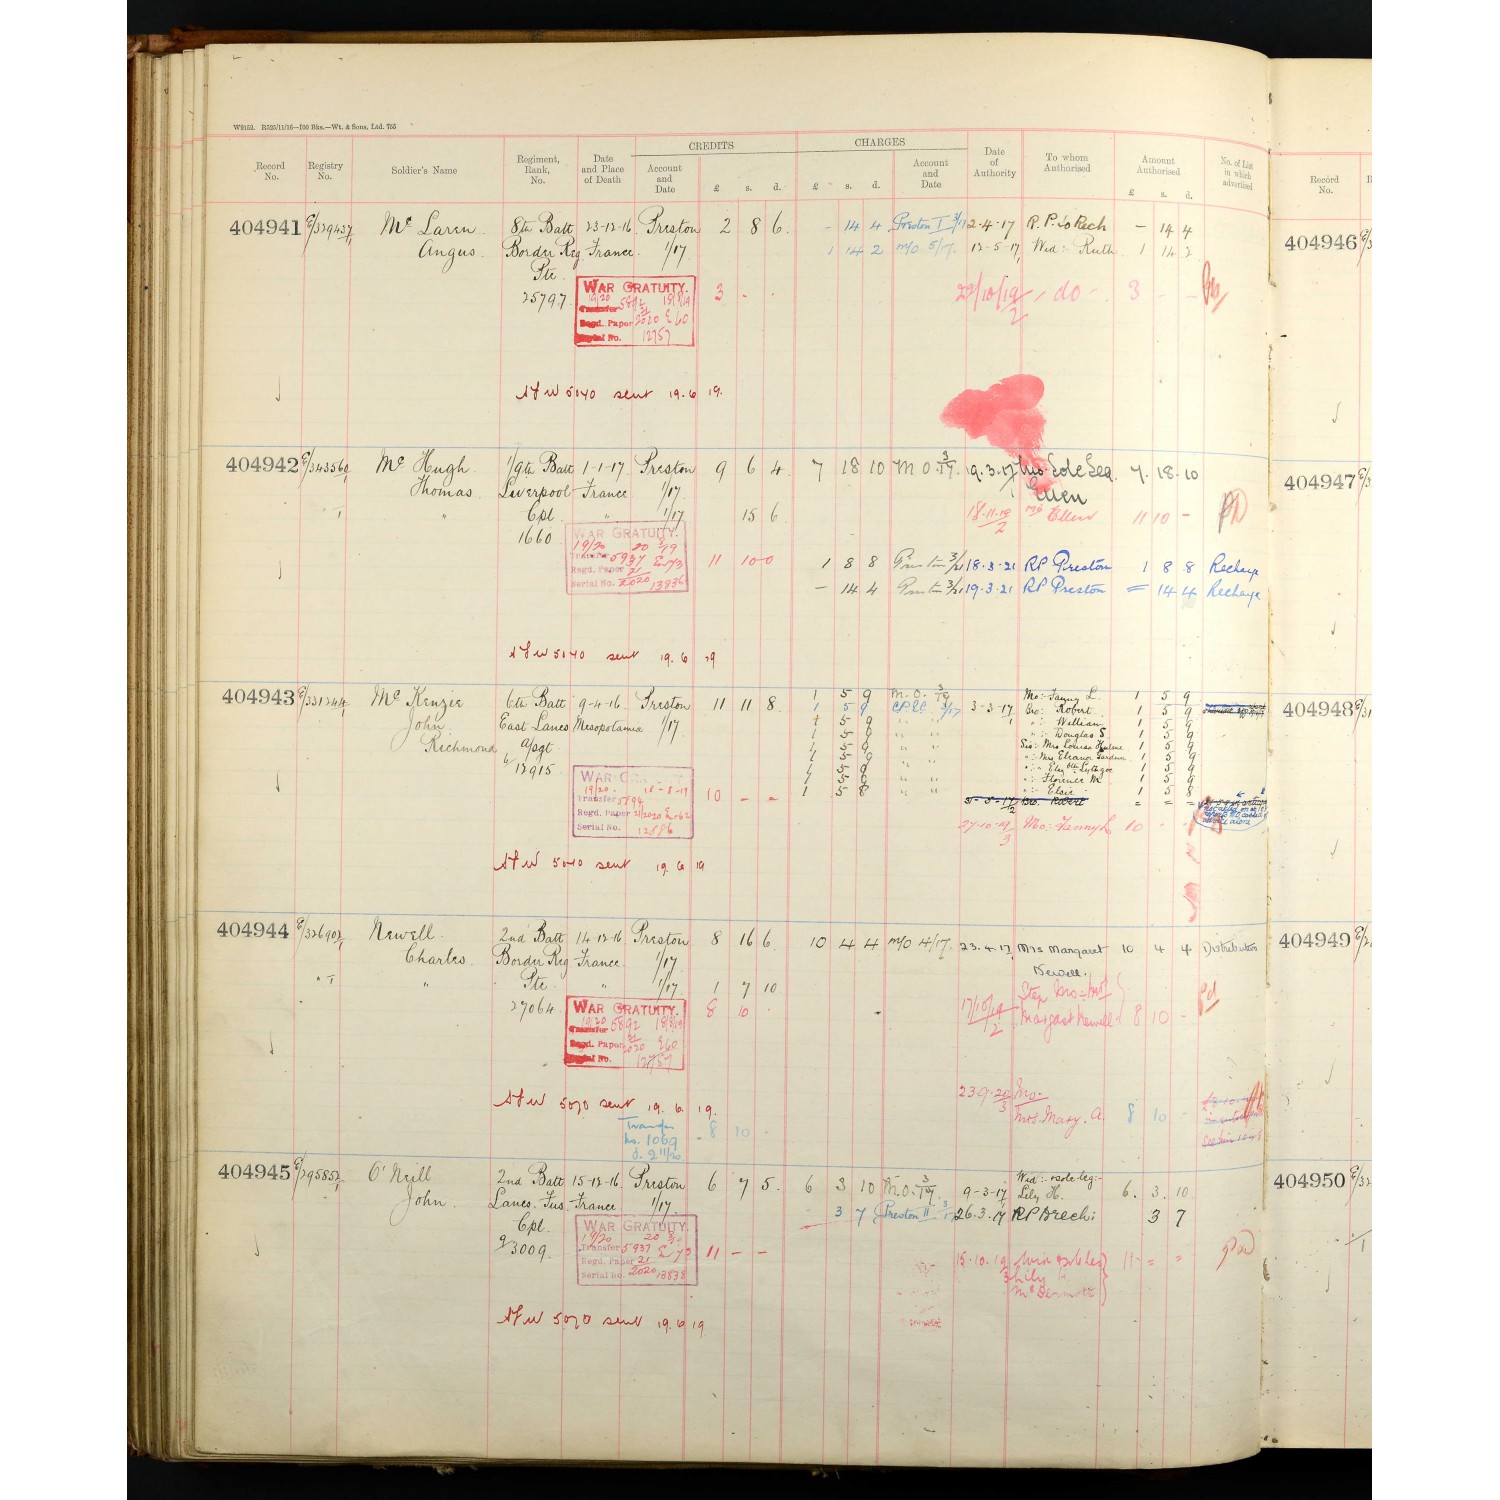 W9152. R525/11/16—100 Bks.—Wt. & Sons, Ltd. 755
CREDITS CHARGES
Record No. Registry No. Soldier's Name Regiment, Rank, No. Date and Place of Death Account and Date £ s. d. £ s. d. Account and Date Date of Authority To whom Authorised Amount Authorised £ s. d. No. of List in which advertised
Record No.
404941 E/329437/1 Mc Laren 8th Batt 23-12-16 Preston 2 8 6 - 14 4 Preston I 3/17 2-4-17 R.P. to Rech - 14 4
Angus Border Reg France 1/17 1 14 2 m/o 5/17 12-5-17 Wid: Ruth 1 14 2
Pte
25797 WAR GRATUITY. 3 - - 22/10/19/2 - do - 3 - -
19/20 18/8/19
Transfer 5892
Regd. Paper 21/2020 E60
Serial No. 12757
AFW 5040 sent 19.6.19.
404942 E/343560/1 Mc Hugh 1/9th Batt 1-1-17 Preston 9 6 4 7 18 10 M.O. 3/17 9.3.17 Mo: Sole Leg. 7 18 10
Thomas Liverpool France 1/17 Ellen
" Cpl " 1/17 15 6 18.11.19/2 Mo Ellen 11 10 -
1660
WAR GRATUITY. 11 10 0 1 8 8 Preston 3/21 18.3.21 RP Preston 1 8 8 Recharge
19/20 20 3/19
Transfer 5937 E173
Regd. Paper 21/2020
Serial No. 13836
- 14 4 Preston 3/21 19.3.21 RP Preston = 14 4 Recharge
AFW 5040 sent 19.6.19
404943 E/331244/1 Mc Kenzie 6th Batt 9-4-16 Preston 11 11 8 1 5 9 M.O. 3/17 Mo:- Fanny L. 1 5 9
John East Lancs Mesopotamia 1/17 1 5 9 3-3-17 Bro: Robert 1 5 9
Richmond A/Sgt 1 5 9 " : William 1 5 9
12915 1 5 9 " : Douglas S 1 5 9
1 5 9 Sis: Mrs Louisa Hulme 1 5 9
1 5 9 " : Mrs Eleanor Jardine 1 5 9
1 5 9 " : Elizbth Lythgoe 1 5 9
1 5 9 " : Florence M. 1 5 9
1 5 8 " : Elsie 1 5 8
WAR GRATUITY 10 - - 5-5-17/2 Bro. Robert = = =
19/20 18-8-19
Transfer 5894
Regd. Paper 21/2020 E62
Serial No. 12886
27-10-19/3 Mo: Fanny L 10 - -
AFW 5040 sent 19.6.19
404944 E/326902/1 Newell 2nd Batt 14-12-16 Preston 8 16 6 10 4 4 m/o 4/17 23.4.17 Mrs Margaret 10 4 4 Distribution
Charles Border Reg France 1/17 Newell.
" Pte " 1/17 1 7 10 Step Mo = Mrs
27064 WAR GRATUITY. 8 10 - 17/10/19/2 Margaret Newell 8 10 - Pd
19/20 18/8/19
Transfer 5892
Regd. Paper 21/2020 E60
Serial No. 12757
AFW 5070 sent 19.6.19. 23.9.20/3 Mo. Mrs. Mary. A. 8 10 -
Transfer No. 1069 - 8 10 -
d. 2 11/20
404945 E/295852/1 O'Neill 2nd Batt 15-12-16 Preston 6 7 5 6 3 10 M.O. 3/17 9-3-17 Wid: sole leg:- Lily H. 6 3 10
John Lancs. Fus. France 1/17 3 7 Preston II 26.3.17 RP Brech: 3 7
Cpl
9/3009 WAR GRATUITY. 11 - - 15.10.19/3 Wid sole leg Lily H McDermott 11 = =
19/20
Transfer 5937
Regd. Paper 21/2020
Serial No. 13838
AFW 5070 sent 19.6.19
404946
404947
404948
404949
404950